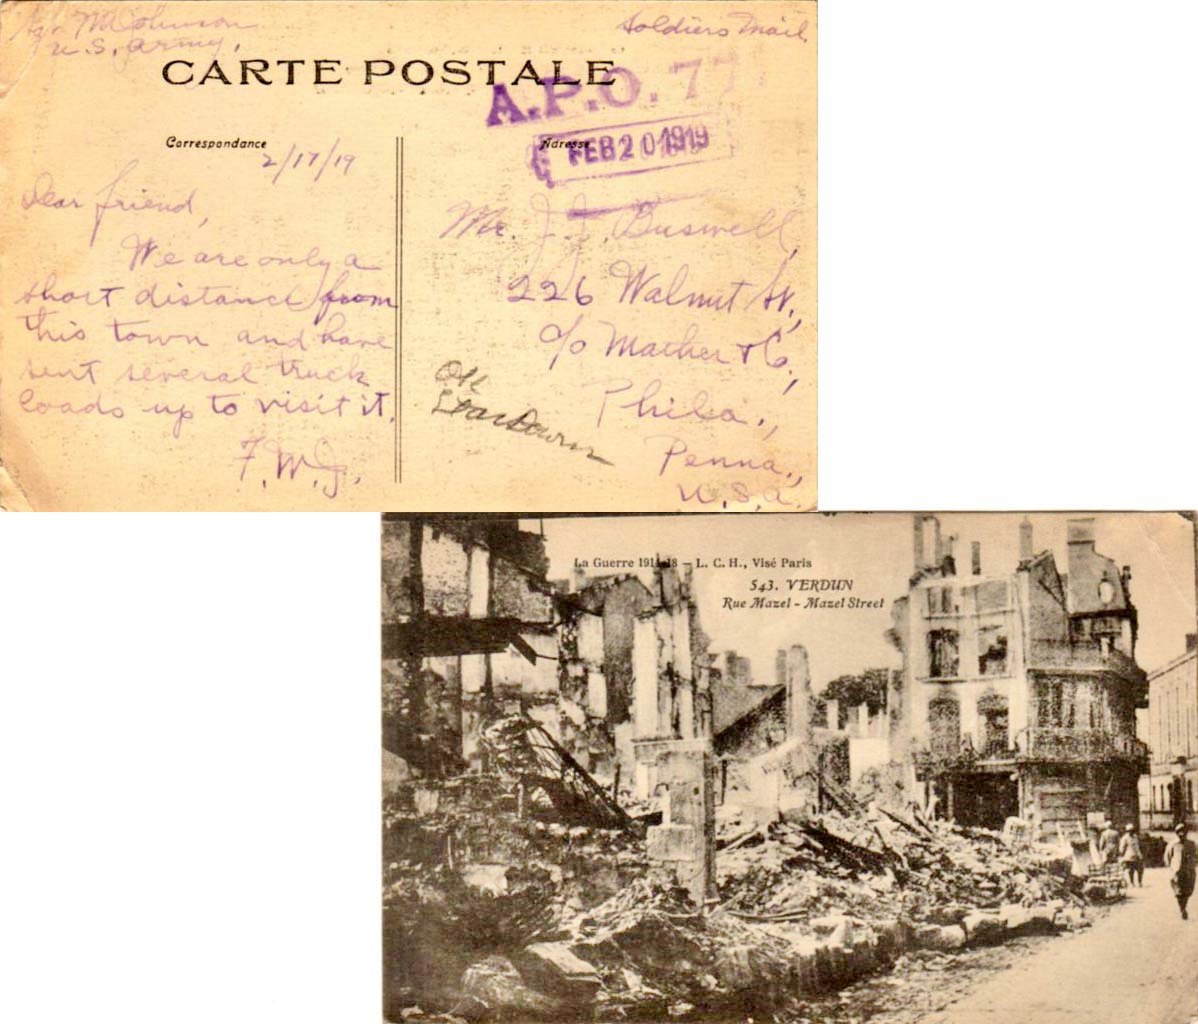 U.S. Army.
Soldiers Mail.
CARTE POSTALE
A.P.O. 77
FEB 20 1919
Correspondance
Adresse
2/17/19
Dear friend,
We are only a
short distance from
this town and have
sent several truck
loads up to visit it.
F.W.J.
Mr. J. J. Buswell,
226 Walnut St.,
c/o Mather & Co.,
Phila.,
Penna.,
U.S.A.
OK
La Guerre 1914-18 — L. C. H., Visé Paris
543. VERDUN
Rue Mazel - Mazel Street